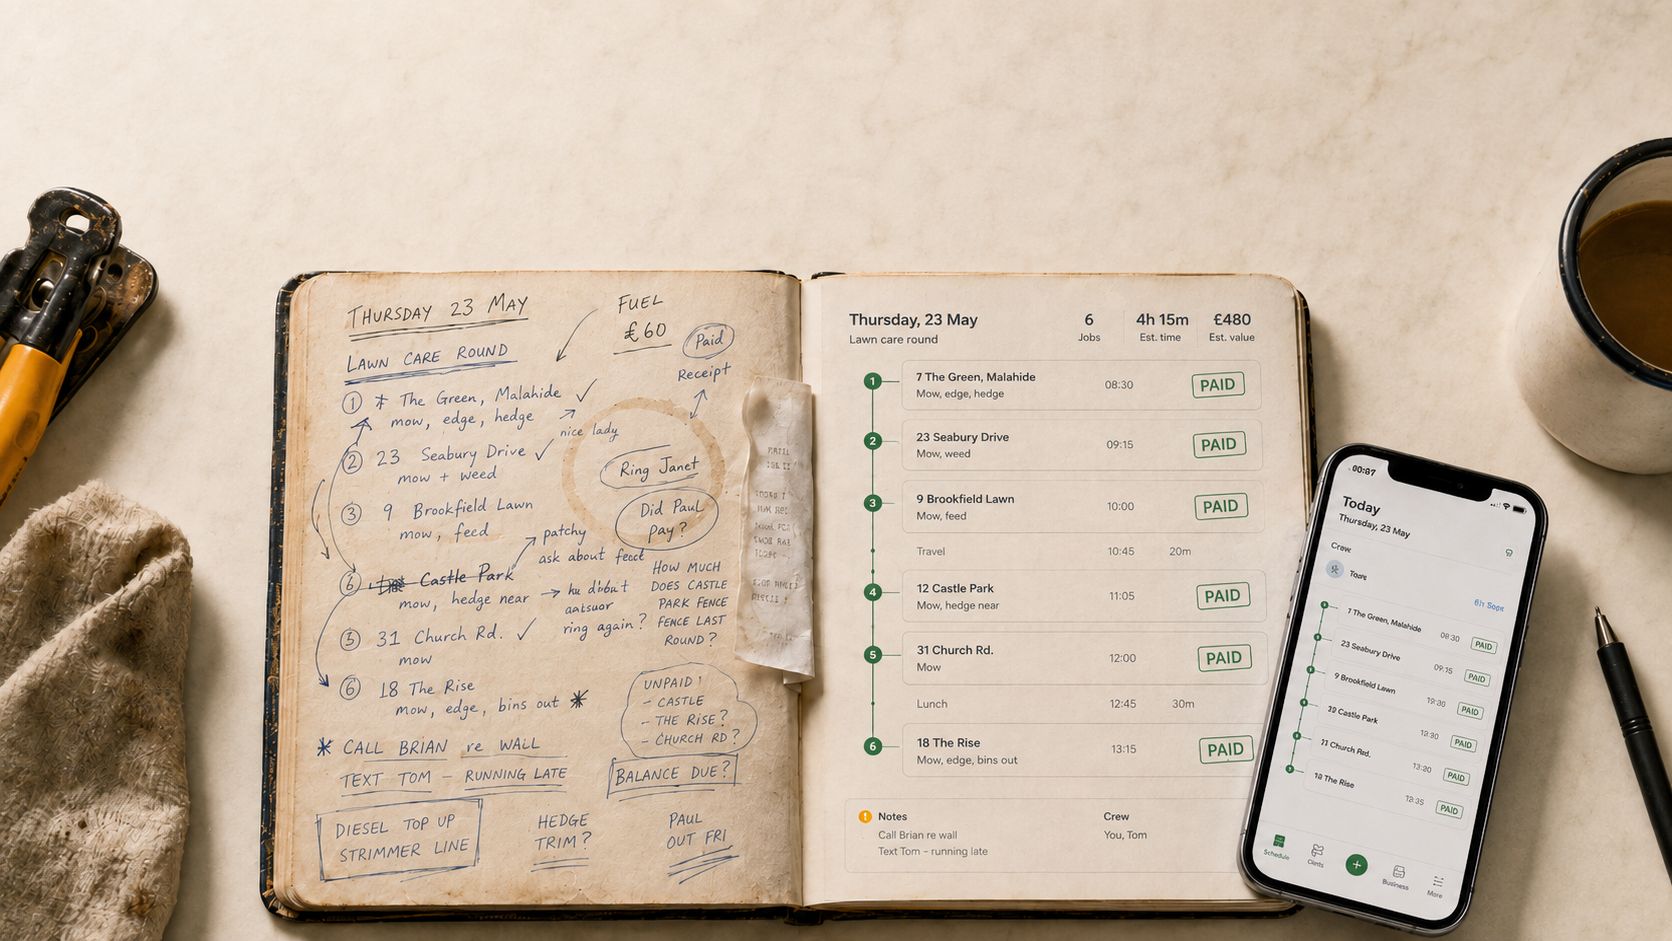 THURSDAY 23 MAY
FUEL
£60
Paid
Receipt
LAWN CARE ROUND
1 * The Green, Malahide ✓
mow, edge, hedge
nice lady
2 23 Seabury Drive ✓
mow + weed
Ring Janet
3 9 Brookfield Lawn
mow, feed
Did Paul
pay?
patchy
ask about feed
6 Castle Park
mow, hedge near
ring again?
HOW MUCH
DOES CASTLE
PARK FENCE
FENCE LAST
ROUND?
3 31 Church Rd. ✓
mow
6 18 The Rise
mow, edge, bins out *
UNPAID!
- CASTLE
- THE RISE?
- CHURCH RD?
* CALL BRIAN re WALL
TEXT TOM - RUNNING LATE
BALANCE DUE?
DIESEL TOP UP
STRIMMER LINE
HEDGE
TRIM?
PAUL
OUT FRI
Thursday, 23 May
Lawn care round
6
Jobs
4h 15m
Est. time
£480
Est. value
1 7 The Green, Malahide 08:30 PAID
Mow, edge, hedge
2 23 Seabury Drive 09:15 PAID
Mow, weed
3 9 Brookfield Lawn 10:00 PAID
Mow, feed
Travel 10:45 20m
4 12 Castle Park 11:05 PAID
Mow, hedge near
5 31 Church Rd. 12:00 PAID
Mow
Lunch 12:45 30m
6 18 The Rise 13:15 PAID
Mow, edge, bins out
Notes
Call Brian re wall
Text Tom - running late
Crew
You, Tom
Today
Thursday, 23 May
Crew
7 The Green, Malahide 08:30 PAID
23 Seabury Drive 09:15 PAID
9 Brookfield Lawn PAID
Castle Park PAID
Church Rd. PAID
18 The Rise PAID
Schedule
Business
More